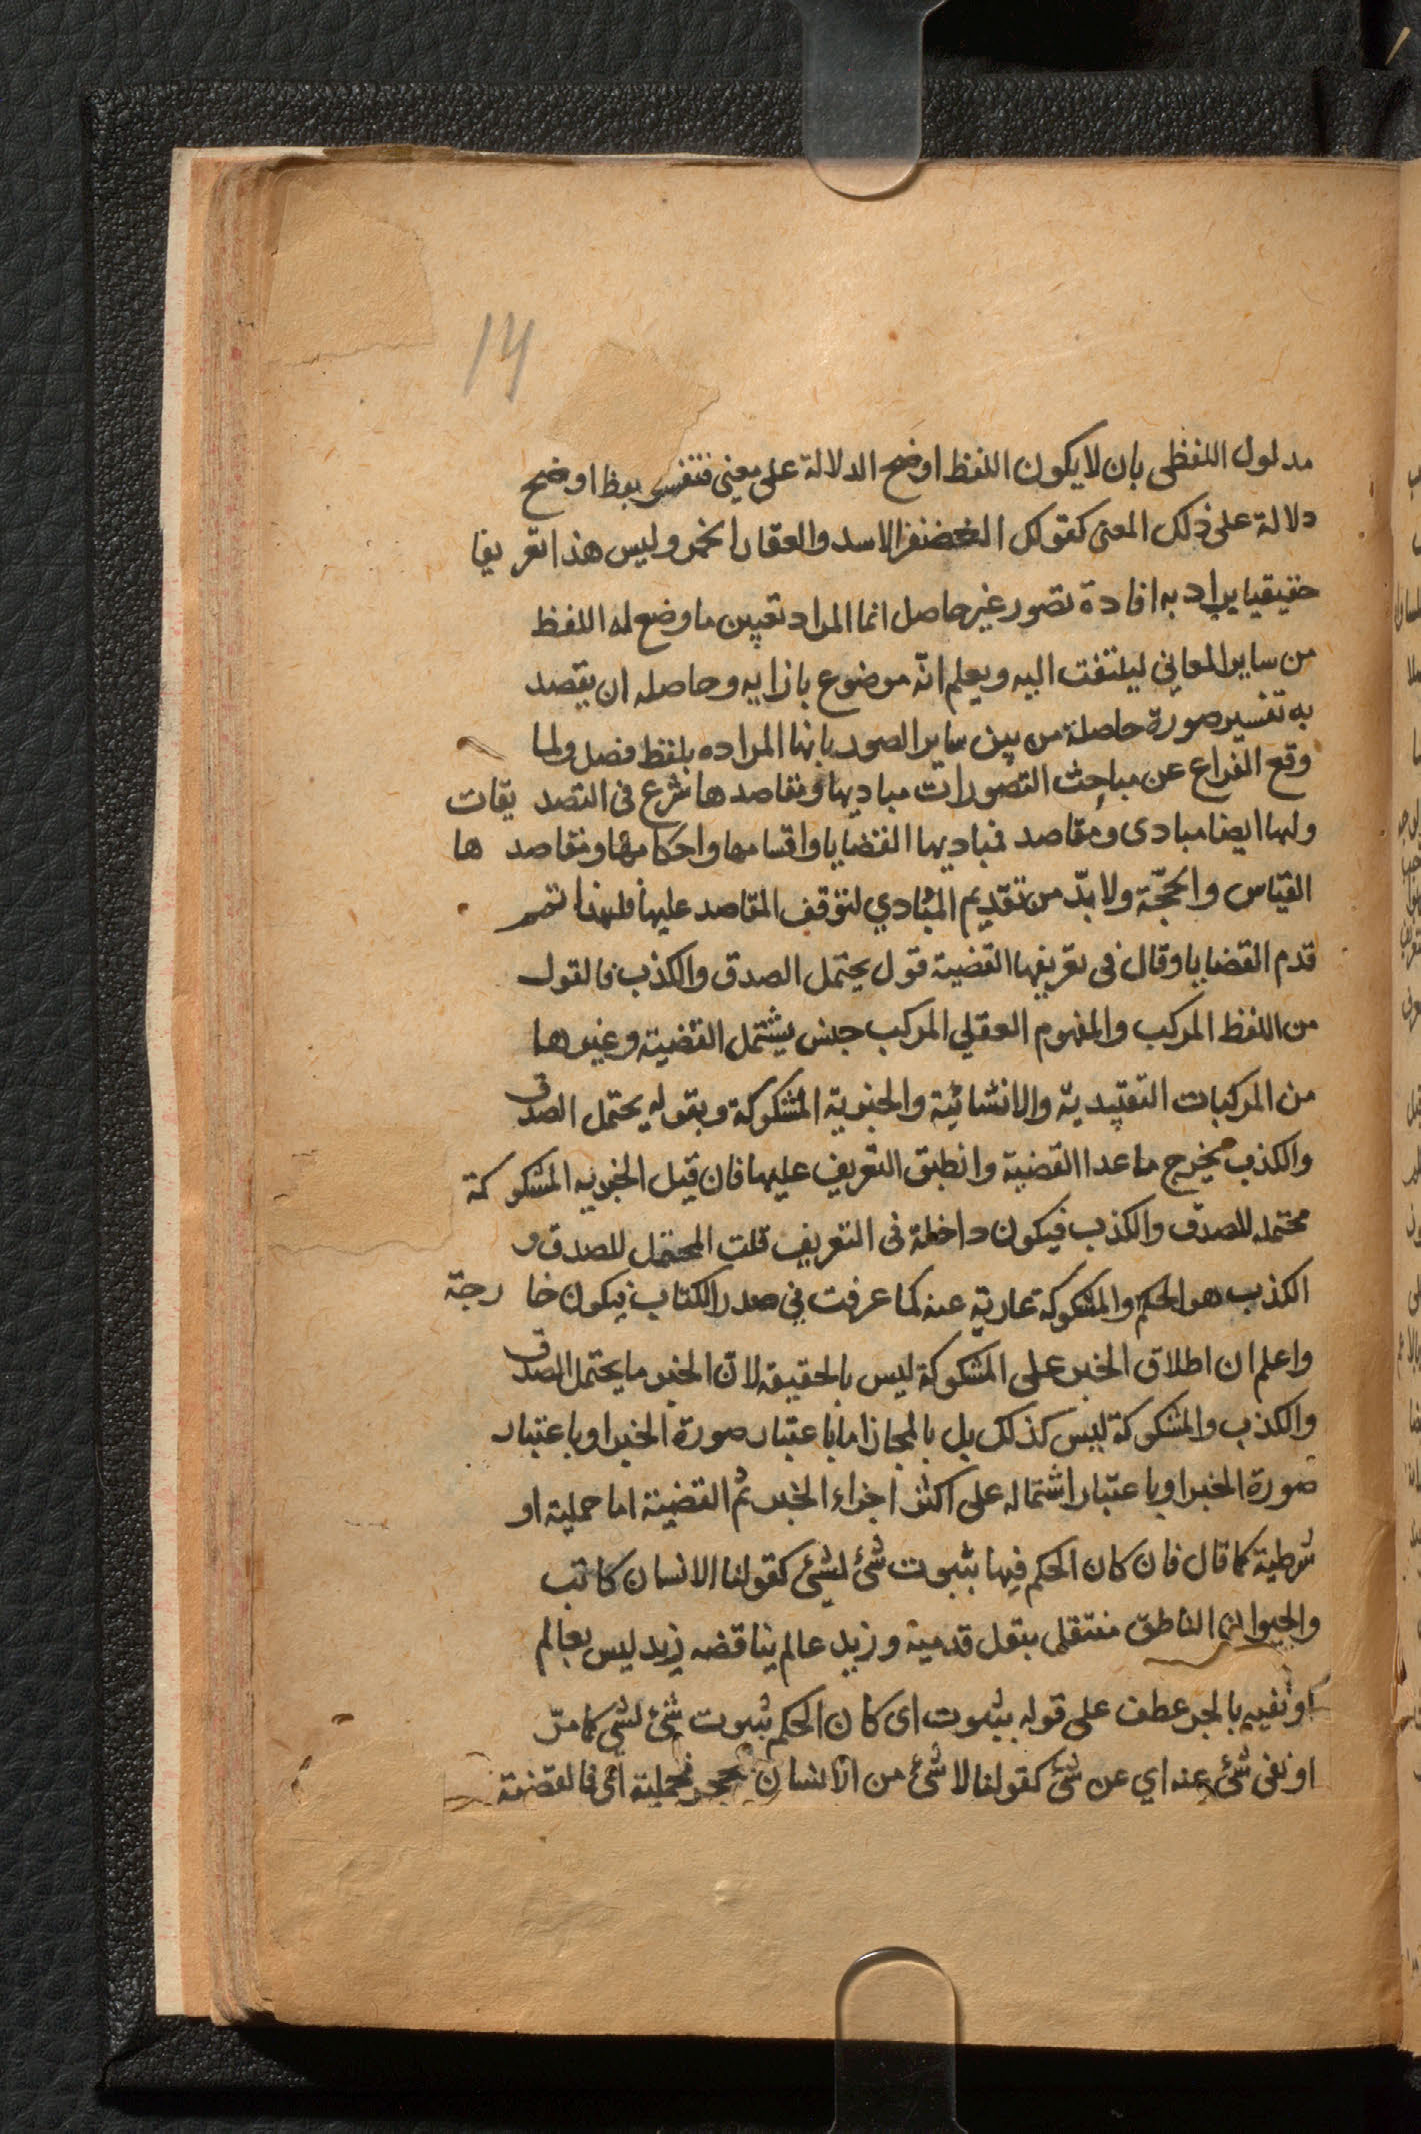 14
مدلول اللفظى بان لا يكون اللفظ اوضح الدلالة على معنى فتفسر بلفظ اوضح
دلالة على ذلك المعنى كقولك الغضنفر الاسد والعقار الخمر وليس هذا تعريفا
حقيقيا يراد به افادة تصور غير حاصل انما المراد تعيين ما وضع له اللفظ
من ساير المعاني ليلتفت اليه ويعلم انّه موضوع بازايه وحاصله ان يقصد
به تفسير صورة حاصلة من بين ساير الصور بانها المراده بلفظ فصل ولما
وقع الفراغ عن مباحث التصورات مباديها ومقاصدها شرع فى التصديقات
ولها ايضا مبادى ومقاصد فمباديها القضايا واقسامها واحكامها ومقاصدها
القياس والحجّة ولا بدّ من تقديم المبادي لتوقف المقاصد عليها فلهذا
قدم القضايا وقال فى تعريفها القضية قول يحتمل الصدق والكذب فالقول
من اللفظ المركب والمفهوم العقلي المركب جنس يشتمل القضية وغيرها
من المركبات التقييدية والانشائية والخبرية المشكوكة وبقوله يحتمل الصدق
والكذب يخرج ما عدا القضية وانطبق التعريف عليها فان قيل الخبريه المشكوكة
محتمله للصدق والكذب فيكون داخلة فى التعريف قلت المحتمل للصدق و
الكذب هو الحكم والمشكوكة عارية عنه كما عرفت في صدر الكتاب فيكون خارجة
واعلم ان اطلاق الخبر على المشكوكة ليس بالحقيقه لانّ الخبر ما يحتمل الصدق
والكذب والمشكوكة ليس كذلك بل بالمجاز اما باعتبار صورة الخبر او باعتبار
صورة الخبر او باعتبار اشتماله على اكثر اجزاء الخبر ثم القضية اما حملية او
شرطية كما قال فان كان الحكم فيها بثبوت شئ لشئ كقولنا الانسان كاتب
والحيوان الناطق منتقل بنقل قدميه وزيد عالم يناقضه زيد ليس بعالم
او نفيه بالجر عطف على قوله بثبوت اى كان الحكم بثبوت شئ لشي كما مرّ
او نفى شئ عنه اي عن شئ كقولنا لا شئ من الانسان بحجر فحملية اى فالقضية